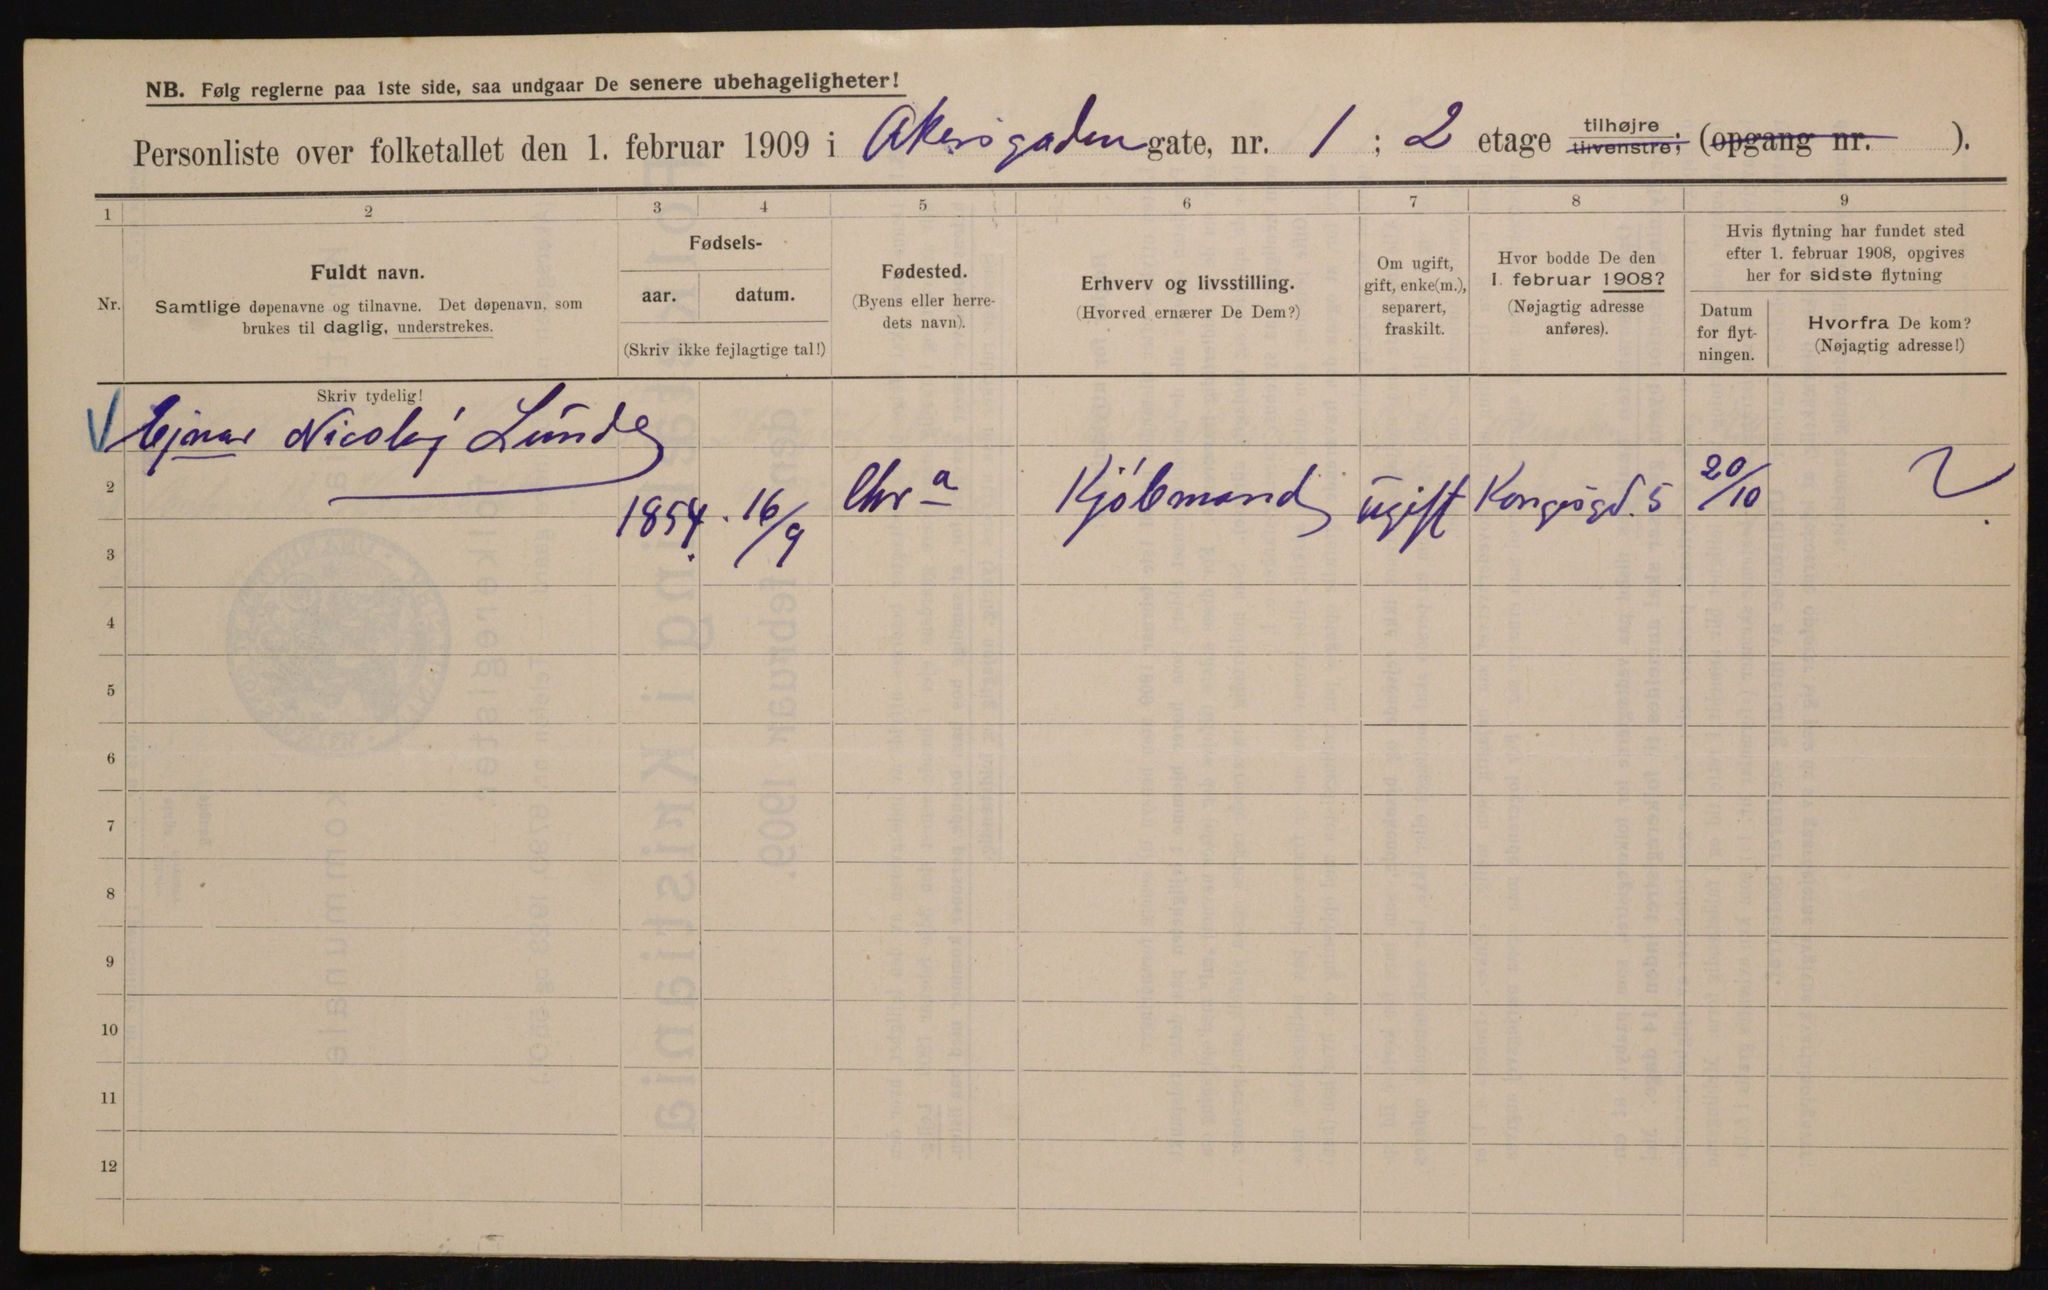 NB. Følg reglerne paa 1ste side, saa undgaar De senere ubehageligheter!
Personliste over folketallet den 1. februar 1909 i Akersgaden gate, nr. 1; 2 etage tilhøjre tilvenstre; (opgang nr. ).
1 2 3 4 5 6 7 8 9
Nr.
Fuldt navn.
Samtlige døpenavne og tilnavne. Det døpenavn, som
brukes til daglig, understrekes.
Fødsels-
aar. datum.
(Skriv ikke fejlagtige tal!)
Fødested.
(Byens eller herre-
dets navn).
Erhverv og livsstilling.
(Hvorved ernærer De Dem?)
Om ugift,
gift, enke(m.),
separert,
fraskilt.
Hvor bodde De den
1. februar 1908?
(Nøjagtig adresse
anføres).
Hvis flytning har fundet sted
efter 1. februar 1908, opgives
her for sidste flytning
Datum
for flyt-
ningen.
Hvorfra De kom?
(Nøjagtig adresse!)
Skriv tydelig!
Ejnar Nicolaj Lunde
2 1854. 16/9 Chr a Kjøbmand ugift Kongsgd. 5 20/10
3
4
5
6
7
8
9
10
11
12